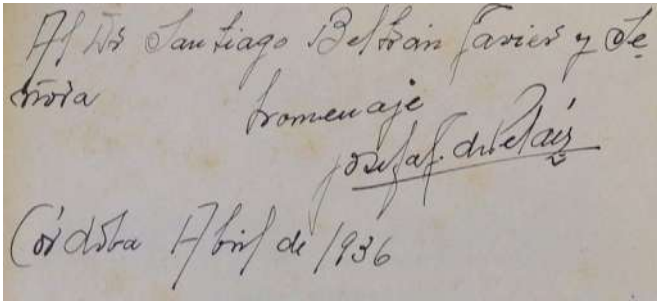 Al Dr Santiago Beltrán Gavier y Se-
ñora
homenaje
Josefa F. de Peláiz
Córdoba Abril de 1936